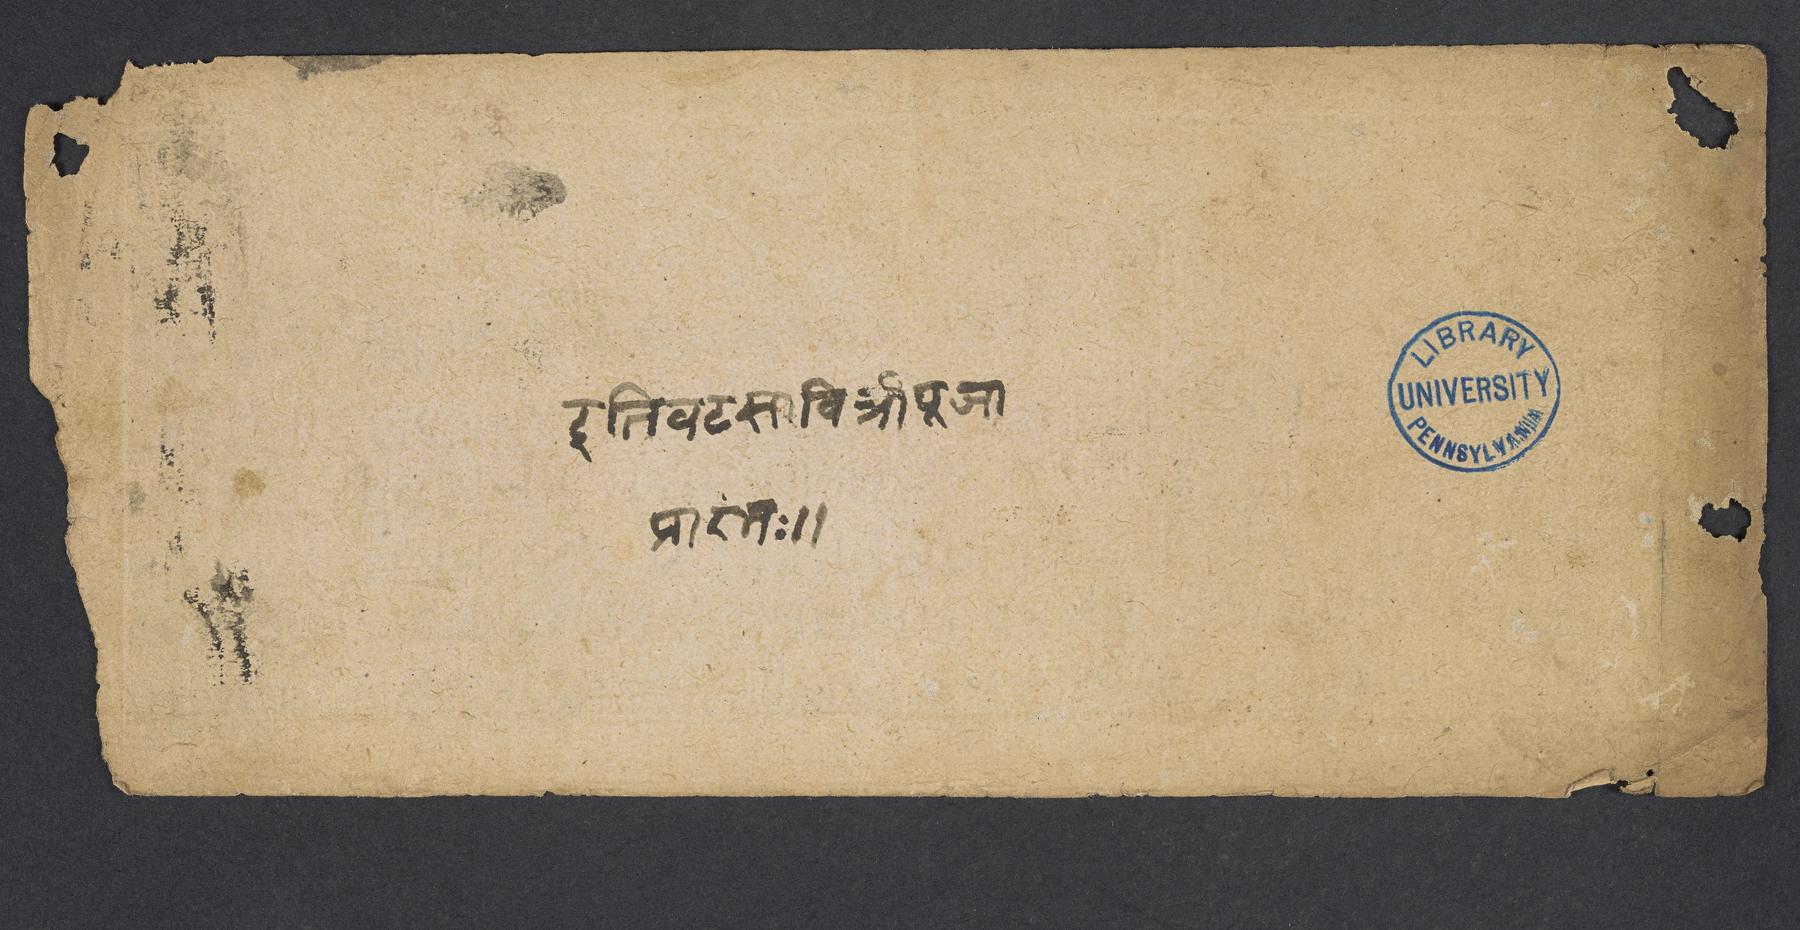 इतिवटसावित्रीपूजा
प्रारंभः॥
LIBRARY
UNIVERSITY
PENNSYLVANIA